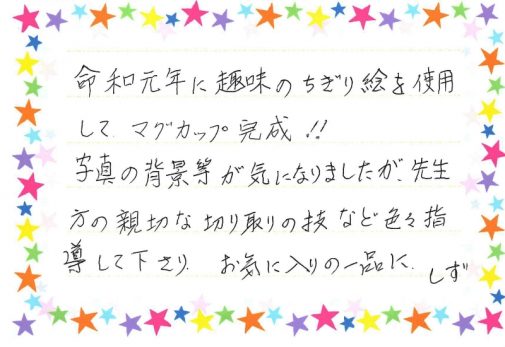 命和元年に趣味のちぎり絵を使用
して マグカップ完成!!
写真の背景等が気になりましたが、先生
方の親切な切り取りの技など色々指
導して下さり、お気に入りの一品に。
しず